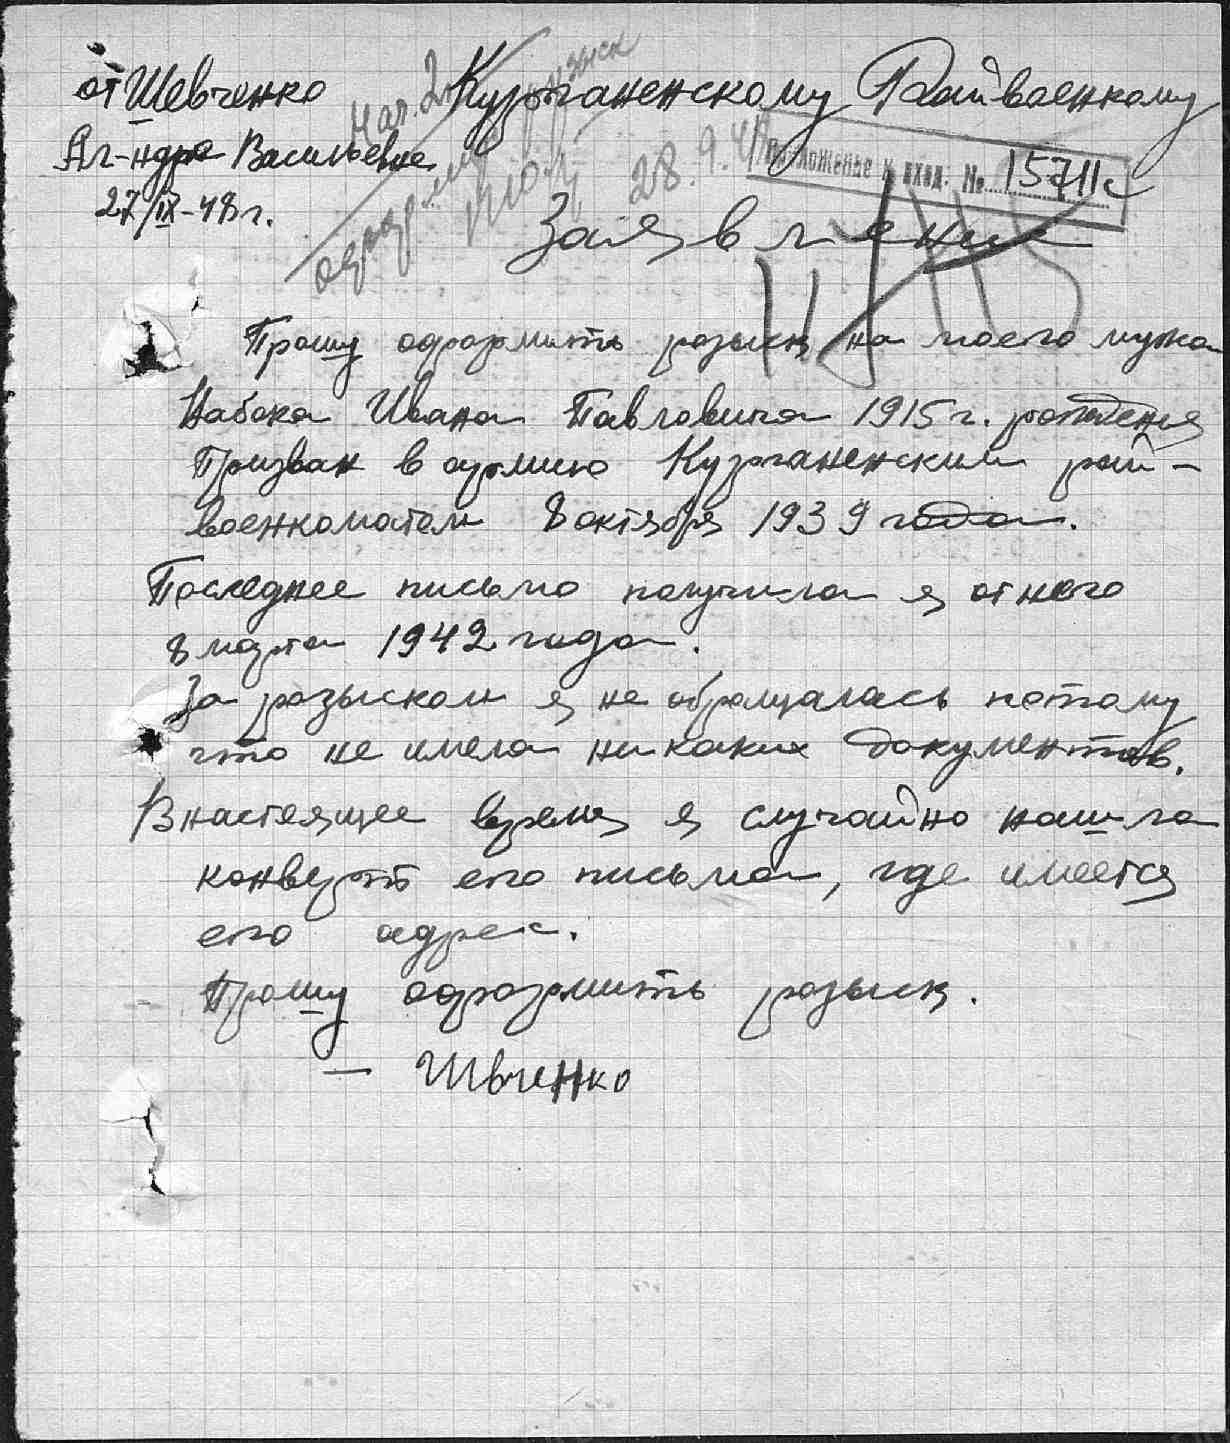 от Шевченко
Ал-ндра Васильевна
27/IX-48 г.
Курганенскому Райвоенкому
нач. 2
розыск
28.9.48
Приложение к вход. № 15711с
Заявление
Прошу оформить розыск на моего мужа
Набока Ивана Павловича 1915 г. рождения
Призван в армию Курганенским рай-
военкоматом 8 октября 1939 года.
Последнее письмо получила я от него
8 марта 1942 года.
За розыском я не обращалась потому
что не имела никаких документов.
В настоящее время я случайно нашла
конверт его письма, где имеется
его адрес.
Прошу оформить розыск.
— Швченко